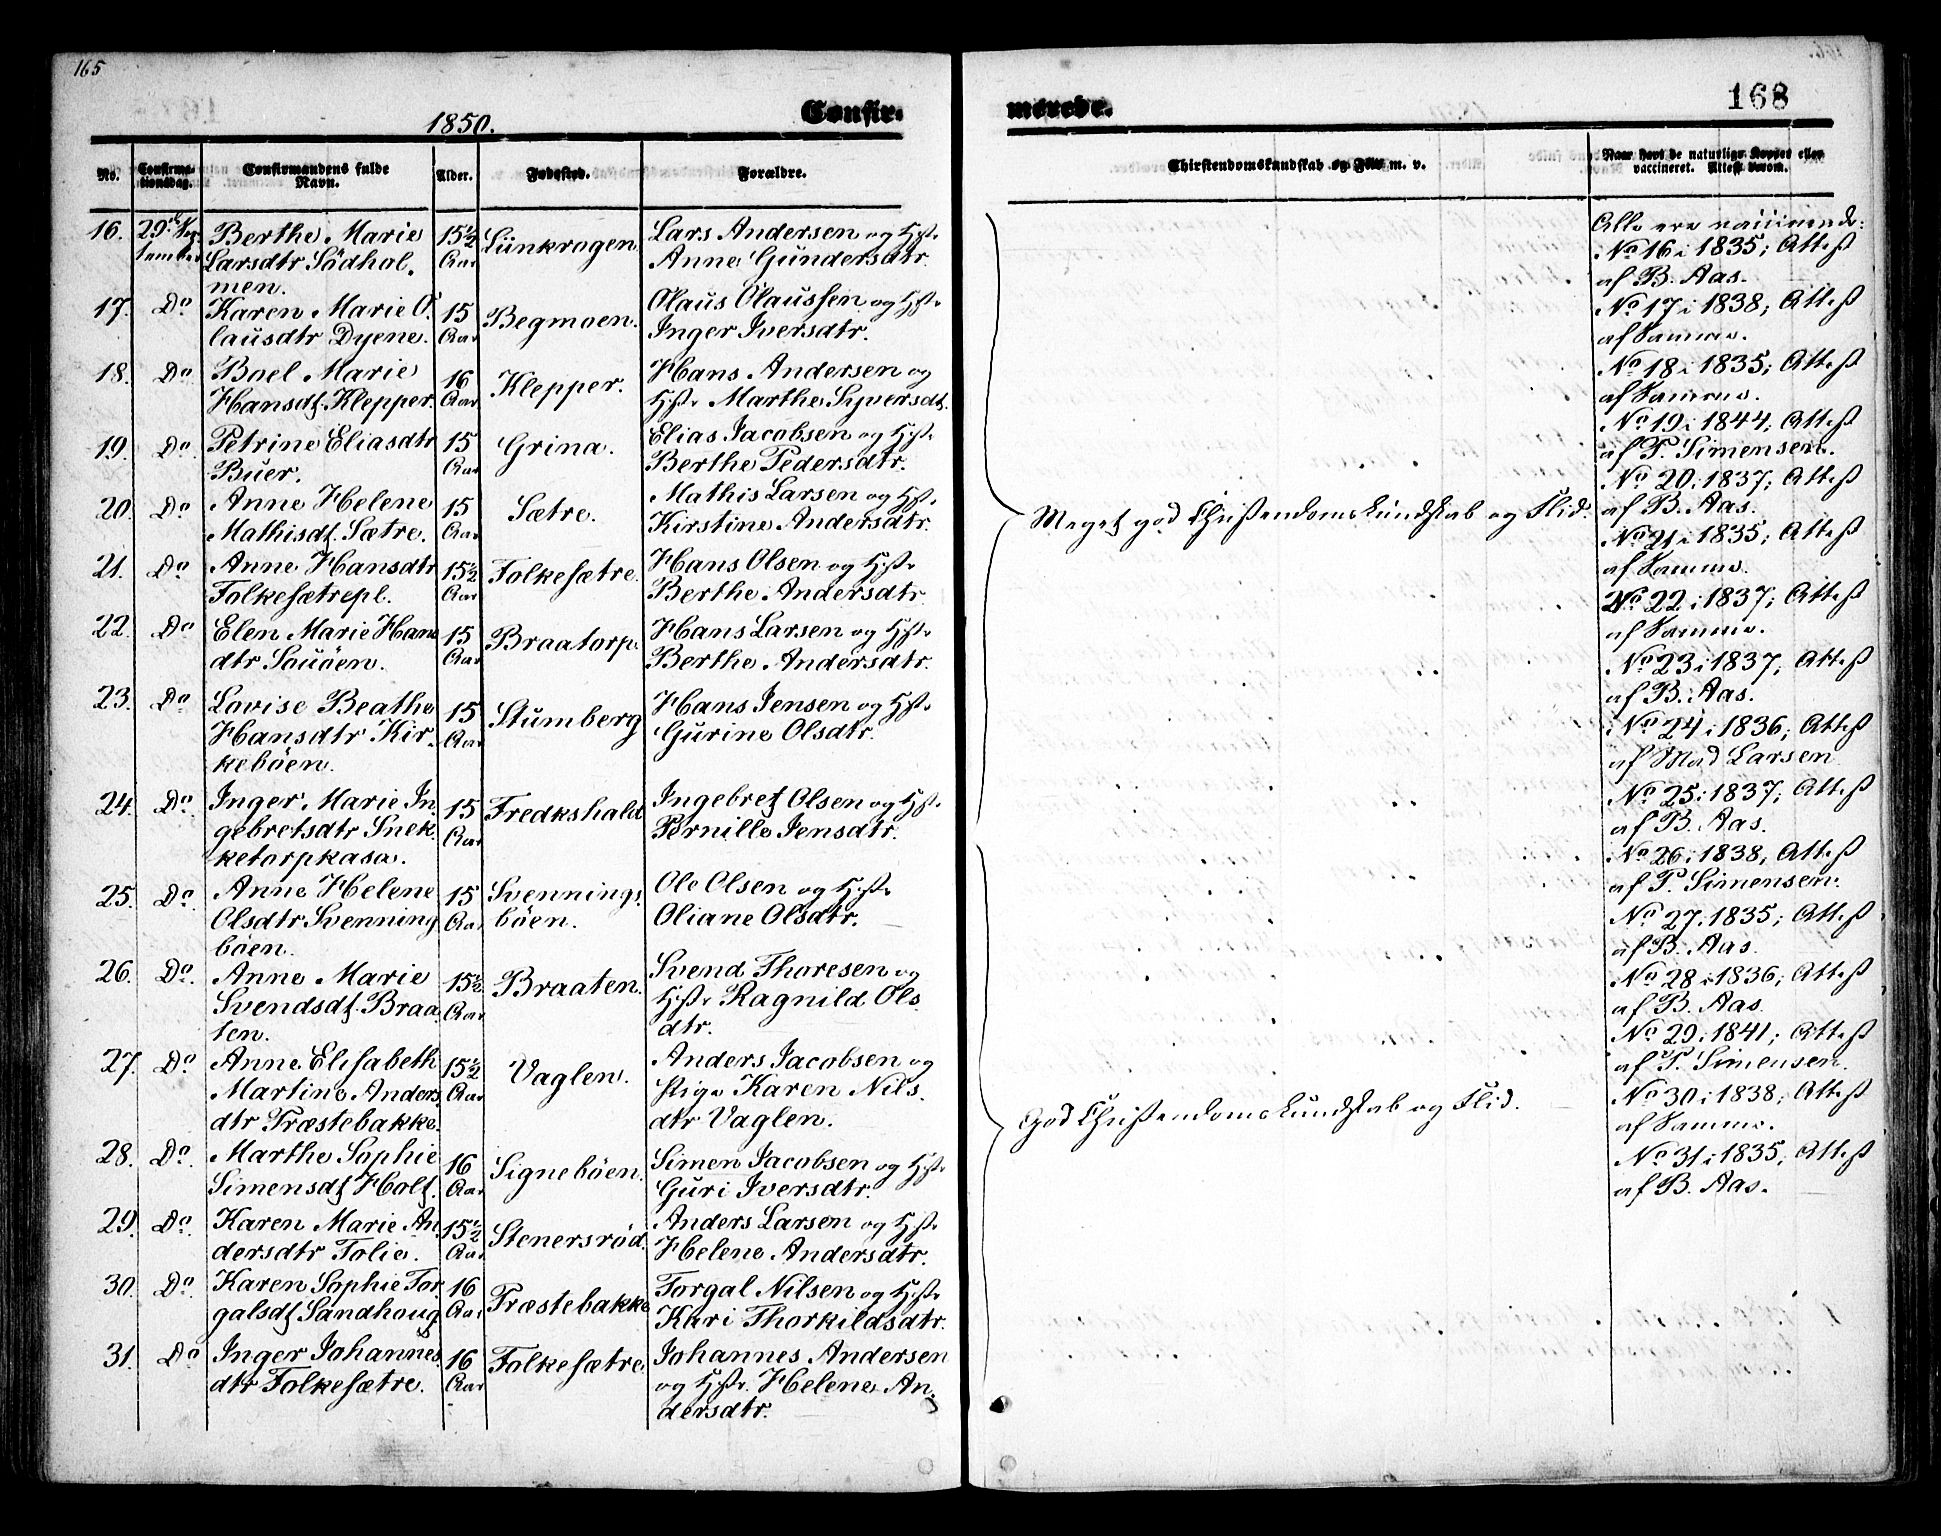 165
1850.
Confir-
No.
Confirma-
tionsdag.
Confirmandens fulde
Navn.
Alder.
Fødested.
Forældre.
16.
29de Sep-
tember
Berthe Marie
Larsdtr Södhol-
men.
15½
Aar
Lünkrogen.
Lars Andersen og Hstr
Anne Gündersdtr.
17.
Do
Karen Marie O-
lausdtr Dyene.
15
Aar
Begmoen.
Olaus Olaussen og Hstr
Inger Iversdtr.
18.
Do
Boel Marie
Hansdt. Klepper.
16
Aar
Klepper.
Hans Andersen og
Hstr Marthe Syversdt.
19.
Do
Petrine Eliasdtr
Buer.
15
Aar
Grina.
Elias Jacobsen og Hstr
Berthe Pedersdtr.
20.
Do
Anne Helene
Mathisdt. Sætre.
15
Aar
Sætre.
Mathis Larsen og Hstr
Kirstine Andersdtr.
21.
Do
Anne Hansdtr
Folkesætrepl.
15½
Aar
Folkesætre.
Hans Olsen og Hstr
Berthe Andersdtr.
22.
Do
Elen Marie Hans
dtr Sauöen.
15
Aar
Braatorp.
Hans Larsen og Hstr
Berthe Andersdtr.
23.
Do
Lovise Beathe
Hansdtr Kir-
keböen.
15
Aar
Stumberg
Hans Jensen og Hstr
Gurine Olsdtr.
24.
Do
Inger Marie In
gebretsdtr Snek-
ketorpkasa.
15
Aar
Fredkshald
Ingebret Olsen og Hstr
Pernille Jensdtr.
25.
Do
Anne Helene
Olsdtr Svenning
böen.
15
Aar
Svennings-
böen.
Ole Olsen og Hstr
Oliane Olsdtr.
26.
Do
Anne Marie
Svendsdt. Braa
ten.
15½
Aar
Braaten.
Svend Thoresen og
Hstr Ragnild Ols-
dtr.
27.
Do
Anne Elisabeth
Martine Anders-
dtr Træstebakke.
15½
Aar
Vaglen.
Anders Jacobsen og
Pige Karen Nils-
dtr Vaglen.
28.
Do
Marthe Sophie
Simensdt Holt.
16
Aar
Signeböen.
Simen Jacobsen og Hstr
Guri Iversdtr.
29.
Do
Karen Marie An
dersdtr Tolie.
15½
Aar
Stenersrød.
Anders Larsen og Hstr
Helene Andersdtr.
30.
Do
Karen Sophie Tor-
galsdt Sandhoug
16
Aar
Træstebakke
Torgal Nilsen og Hstr
Kari Thorkildsdtr.
31.
Do
Inger Johannes-
dtr Folkesætre.
16
Aar
Folkesætre.
Johannes Andersen
og Hstr. Helene An-
dersdtr.
168
merede.
Christendomskundskab og Flid m. v.
Naar havt de naturlige Kopper eller
vaccineret. Attest derom.
Meget god Christendomskundskab og Flid.
God Christendomskundskab og Flid.
Alle ere vaccinerede:
No 16 i 1835; Attest
af B. Aas.
No 17 i 1838; Attest
af Samme.
No 18 i 1835; Attest
af Samme.
No 19 i 1844; Attest
af P. Simensen.
No 20 i 1837; Attest
af B. Aas.
No 21 i 1835; Attest
af Samme.
No 22 i 1837; Attest
af Samme.
No 23 i 1837; Attest
af B. Aas.
No 24 i 1836; Attest
af Mad Larsen
No 25 i 1837; Attest
af B. Aas.
No 26 i 1838; Attest
af P. Simensen.
No 27 i 1835; Attest
af B. Aas.
No 28 i 1836; Attest
af B. Aas.
No 29 i 1841; Attest
af P. Simensen.
No 30 i 1838; Attest
af Samme.
No 31 i 1835; Attest
af B. Aas.